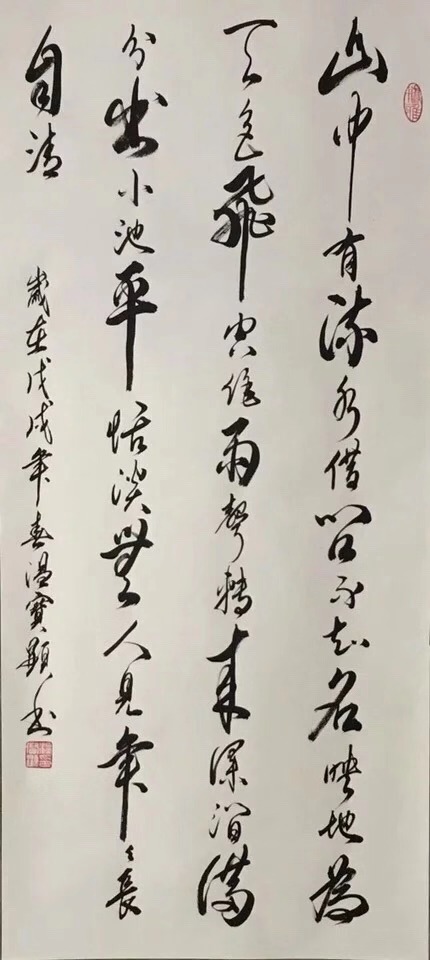 山中有流水借问不知名映地为
天色飛空作雨聲轉來深涧满
分出小池平恬淡無人見年々長
自清
歲在戊戌年春温寶顯书